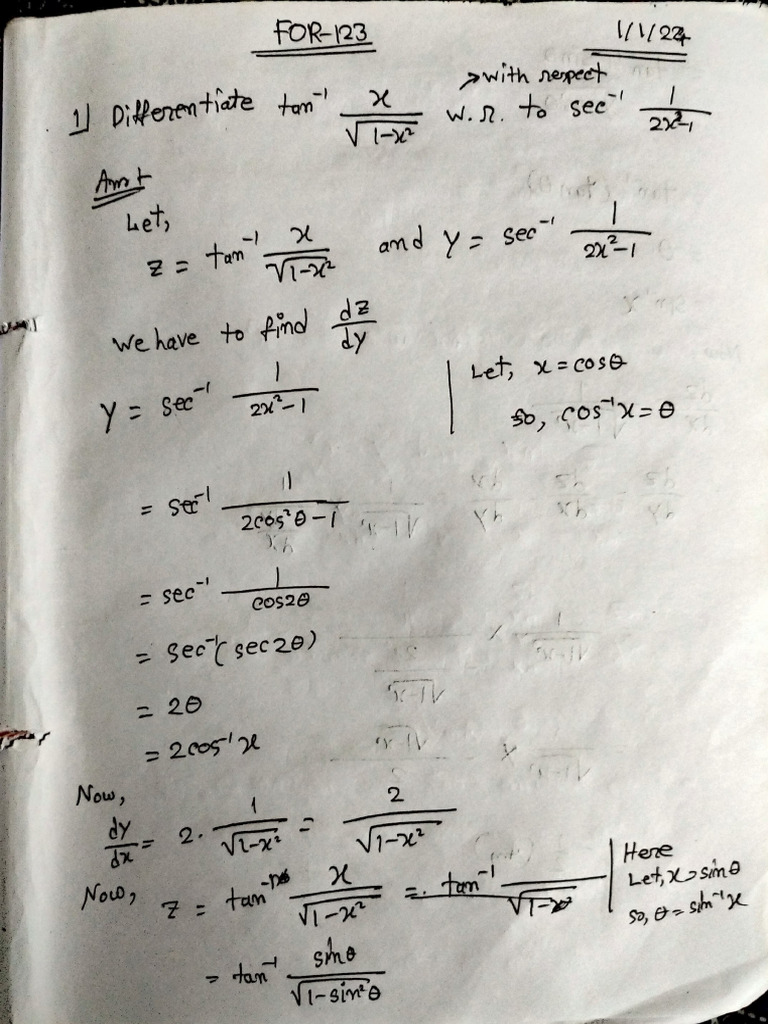 FOR-123 1/1/24
→with respect
1) Differentiate tan⁻¹ x/√(1-x²) w.r. to sec⁻¹ 1/(2x²-1)
Let,
z = tan⁻¹ x/√(1-x²) and y = sec⁻¹ 1/(2x²-1)
we have to find dz/dy
y = sec⁻¹ 1/(2x²-1) | Let, x = cosθ
so, cos⁻¹x = θ
= sec⁻¹ 1/(2cos²θ-1)
= sec⁻¹ 1/cos2θ
= sec⁻¹(sec2θ)
= 2θ
= 2cos⁻¹x
Now,
dy/dx = 2. 1/√(1-x²) = 2/√(1-x²)
Now, z = tan⁻¹ x/√(1-x²)
| Here
Let, x = sinθ
so, θ = sin⁻¹x
= tan⁻¹ sinθ/√(1-sin²θ)